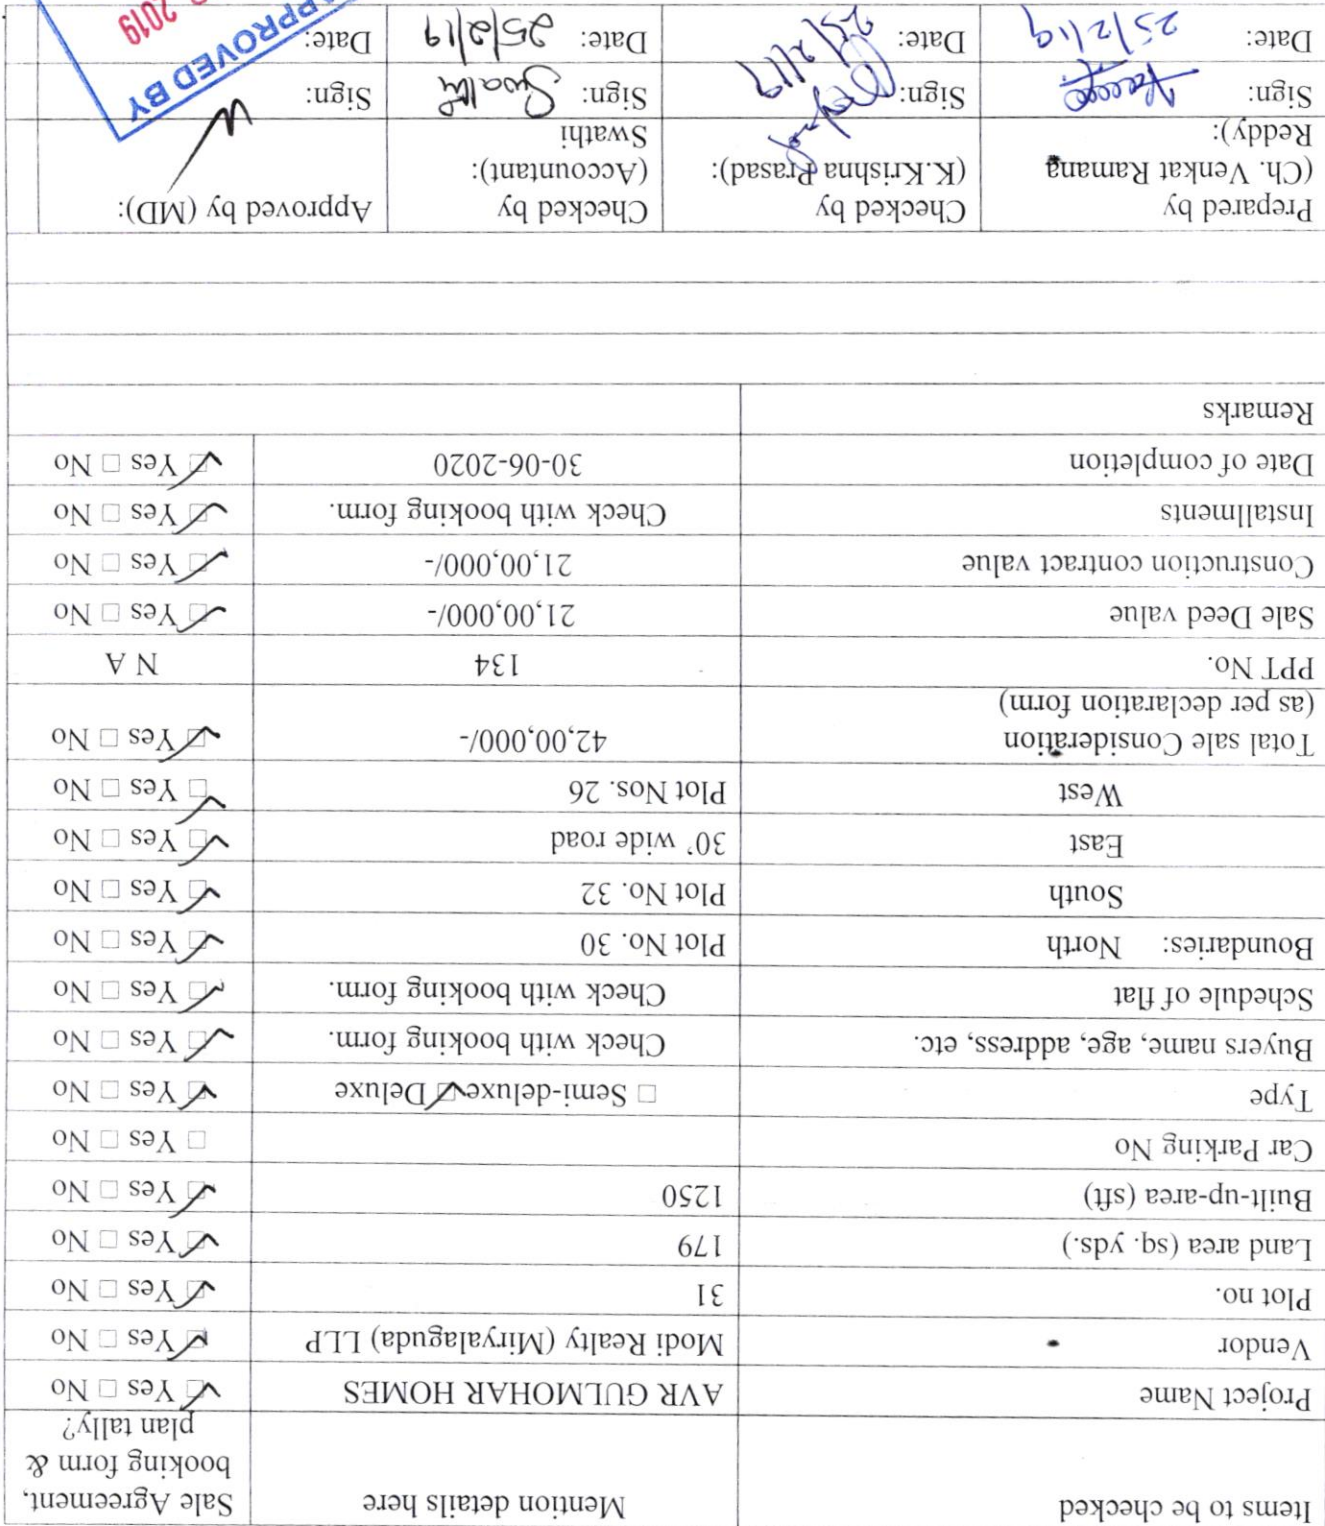 Items to be checked
Mention details here
Sale Agreement,
booking form &
plan tally?
Project Name AVR GULMOHAR HOMES ☑ Yes ☐ No
Vendor Modi Realty (Miryalaguda) LLP ☑ Yes ☐ No
Plot no. 31 ☑ Yes ☐ No
Land area (sq. yds.) 179 ☑ Yes ☐ No
Built-up-area (sft) 1250 ☑ Yes ☐ No
Car Parking No ☐ Yes ☐ No
Type ☐ Semi-deluxe ☑ Deluxe ☑ Yes ☐ No
Buyers name, age, address, etc. Check with booking form. ☑ Yes ☐ No
Schedule of flat Check with booking form. ☑ Yes ☐ No
Boundaries: North Plot No. 30 ☑ Yes ☐ No
South Plot No. 32 ☑ Yes ☐ No
East 30' wide road ☑ Yes ☐ No
West Plot Nos. 26 ☑ Yes ☐ No
Total sale Consideration
(as per declaration form) 42,00,000/- ☑ Yes ☐ No
PPT No. 134 N A
Sale Deed value 21,00,000/- ☑ Yes ☐ No
Construction contract value 21,00,000/- ☑ Yes ☐ No
Installments Check with booking form. ☑ Yes ☐ No
Date of completion 30-06-2020 ☑ Yes ☐ No
Remarks
Prepared by
(Ch. Venkat Ramana
Reddy):
Sign:
Date: 25/2/19
Checked by
(K.Krishna Prasad):
Sign:
Date: 25/2/19
Checked by
(Accountant):
Swathi
Sign: Swathi
Date: 25/2/19
Approved by (MD):
Sign:
Date:
APPROVED BY
2019